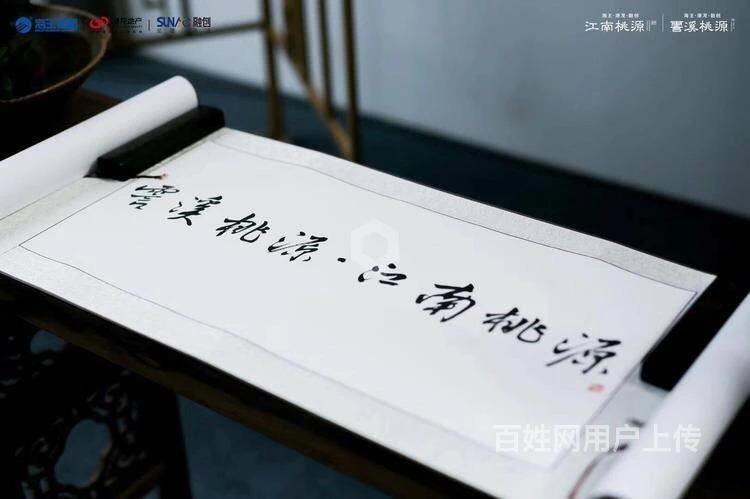 SUNAC融创
江南桃源
霅溪桃源
霅溪桃源·江南桃源
百姓网用户上传